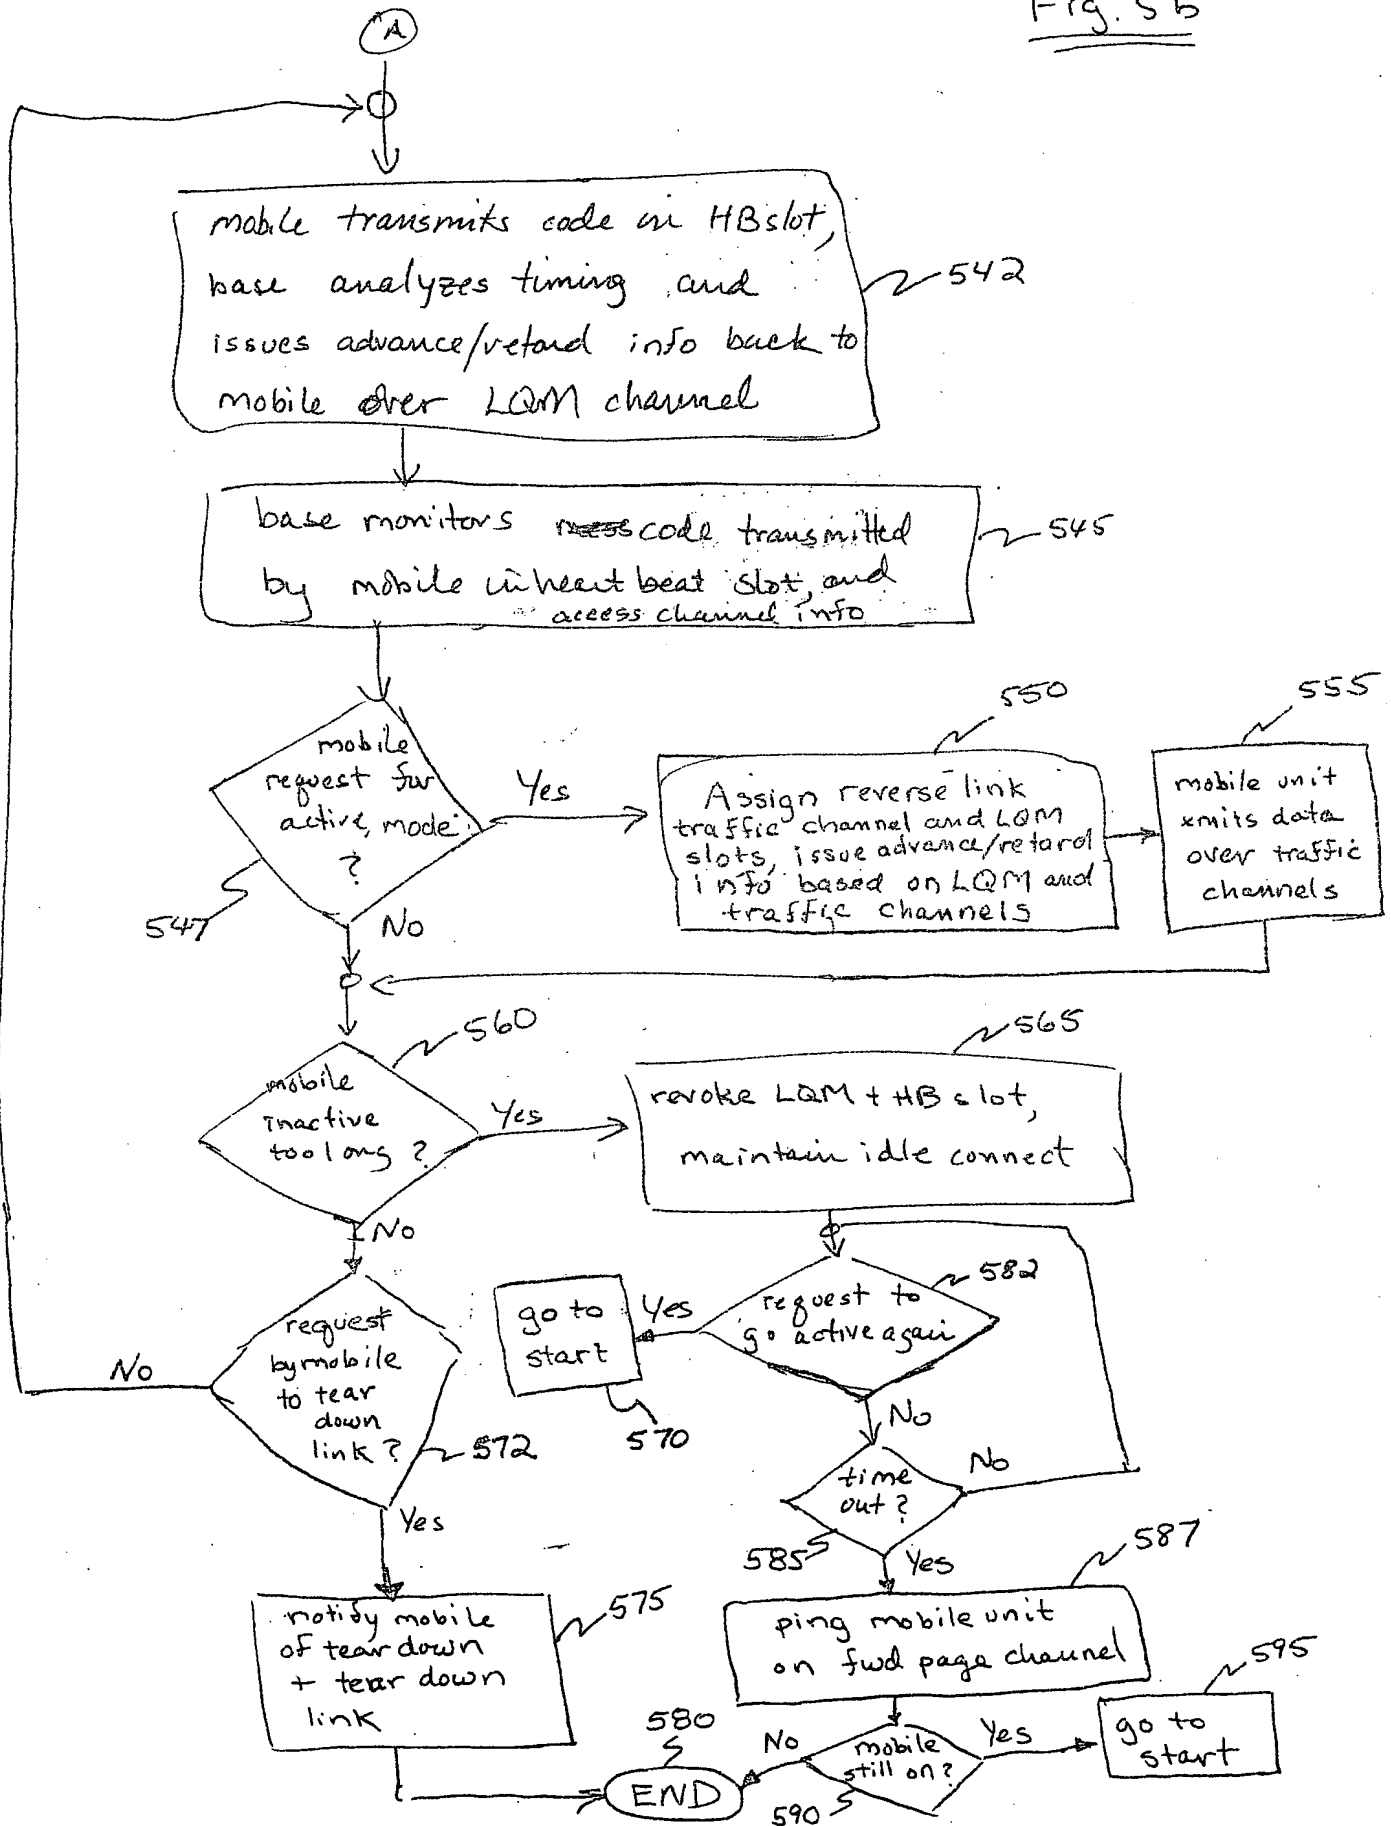 Fig. 5b
A
mobile transmits code in HB slot,
base analyzes timing and
issues advance/retard info back to
mobile over LQM channel
542
base monitors code transmitted
by mobile in heart beat slot, and
access channel info
545
mobile
request for
active, mode
?
547
Yes
No
550
Assign reverse link
traffic channel and LQM
slots, issue advance/retard
info based on LQM and
traffic channels
555
mobile unit
xmits data
over traffic
channels
560
mobile
inactive
too long ?
Yes
No
565
revoke LQM + HB slot,
maintain idle connect
582
request to
go active again
Yes
No
go to
start
570
request
by mobile
to tear
down
link ?
572
No
Yes
time
out ?
No
585
Yes
587
ping mobile unit
on fwd page channel
notify mobile
of tear down
+ tear down
link
575
580
END
No
mobile
still on ?
590
Yes
595
go to
start